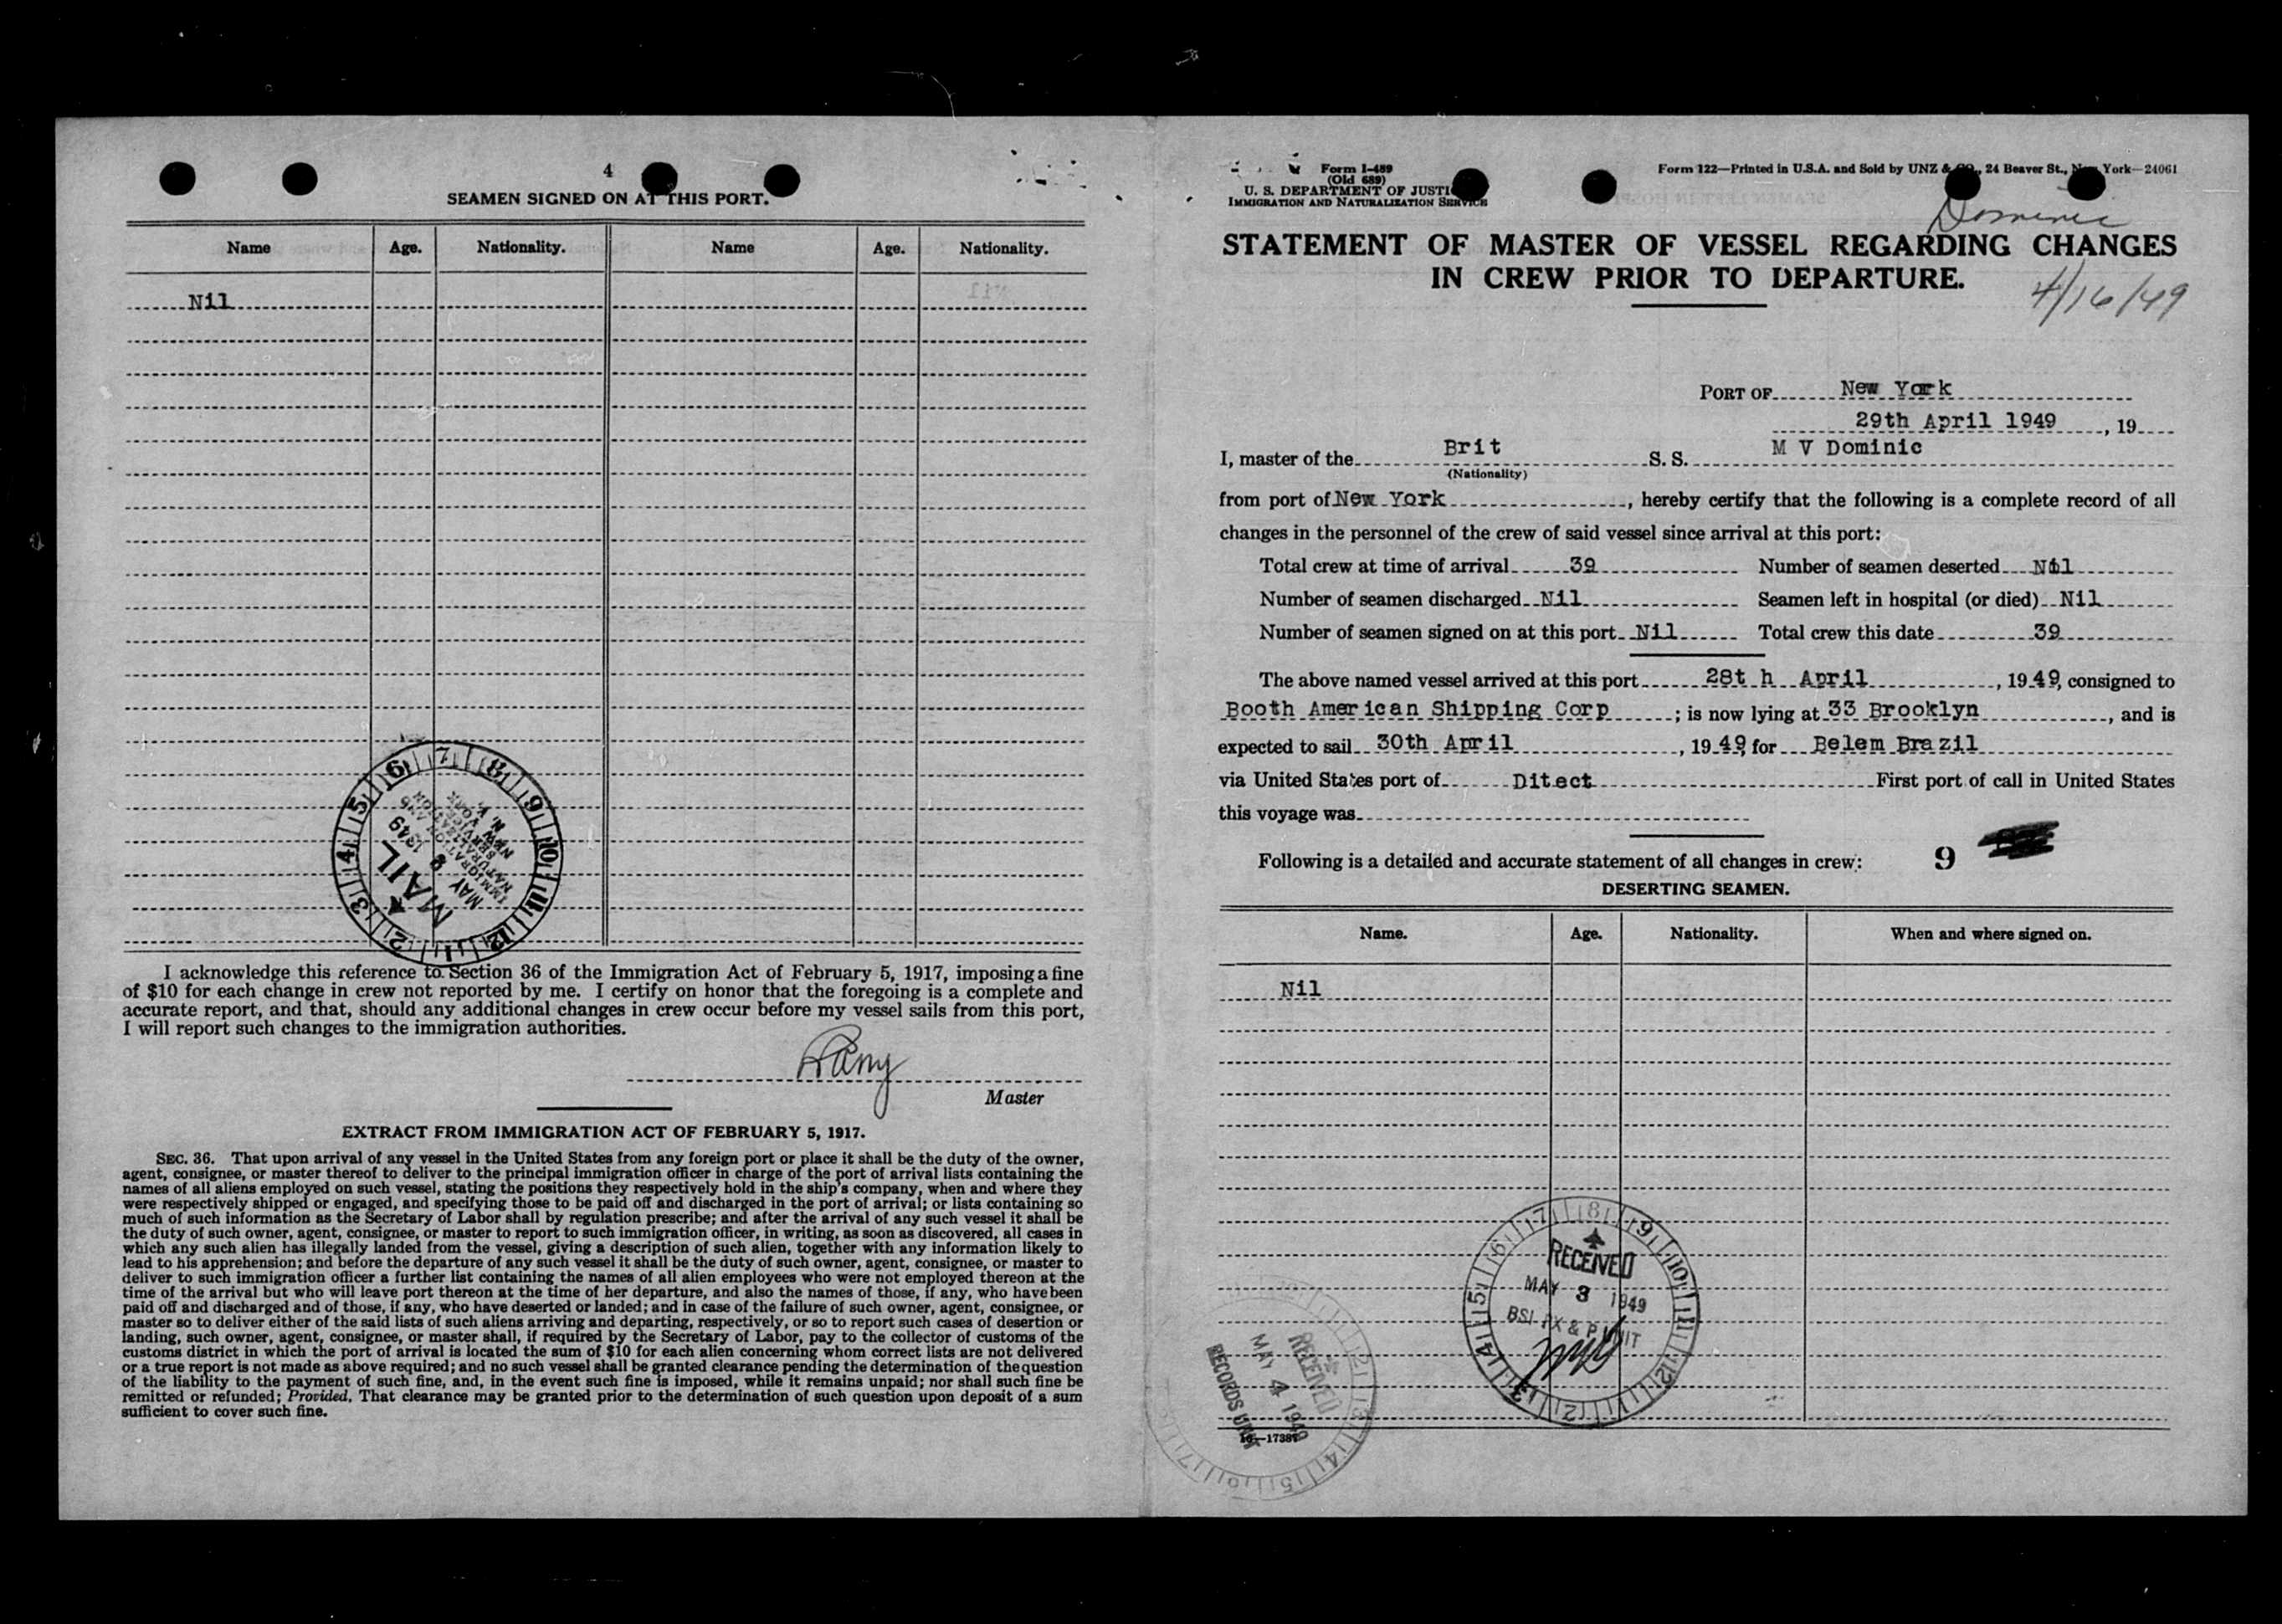 4
SEAMEN SIGNED ON AT THIS PORT.
Name Age. Nationality. Name Age. Nationality.
Nil
6 7 8 9 10 11 12 1 2 3 4 5
MAIL
MAY 3 1949
IMMIGRATION AND
NATURALIZATION
SERVICE
NEW YORK
N. Y.
I acknowledge this reference to Section 36 of the Immigration Act of February 5, 1917, imposing a fine
of $10 for each change in crew not reported by me. I certify on honor that the foregoing is a complete and
accurate report, and that, should any additional changes in crew occur before my vessel sails from this port,
I will report such changes to the immigration authorities.
Master
EXTRACT FROM IMMIGRATION ACT OF FEBRUARY 5, 1917.
SEC. 36. That upon arrival of any vessel in the United States from any foreign port or place it shall be the duty of the owner,
agent, consignee, or master thereof to deliver to the principal immigration officer in charge of the port of arrival lists containing the
names of all aliens employed on such vessel, stating the positions they respectively hold in the ship's company, when and where they
were respectively shipped or engaged, and specifying those to be paid off and discharged in the port of arrival; or lists containing so
much of such information as the Secretary of Labor shall by regulation prescribe; and after the arrival of any such vessel it shall be
the duty of such owner, agent, consignee, or master to report to such immigration officer, in writing, as soon as discovered, all cases in
which any such alien has illegally landed from the vessel, giving a description of such alien, together with any information likely to
lead to his apprehension; and before the departure of any such vessel it shall be the duty of such owner, agent, consignee, or master to
deliver to such immigration officer a further list containing the names of all alien employees who were not employed thereon at the
time of the arrival but who will leave port thereon at the time of her departure, and also the names of those, if any, who have been
paid off and discharged and of those, if any, who have deserted or landed; and in case of the failure of such owner, agent, consignee, or
master so to deliver either of the said lists of such aliens arriving and departing, respectively, or so to report such cases of desertion or
landing, such owner, agent, consignee, or master shall, if required by the Secretary of Labor, pay to the collector of customs of the
customs district in which the port of arrival is located the sum of $10 for each alien concerning whom correct lists are not delivered
or a true report is not made as above required; and no such vessel shall be granted clearance pending the determination of the question
of the liability to the payment of such fine, and, in the event such fine is imposed, while it remains unpaid; nor shall such fine be
remitted or refunded; Provided, That clearance may be granted prior to the determination of such question upon deposit of a sum
sufficient to cover such fine.
Form I-489
(Old 689)
U. S. DEPARTMENT OF JUSTICE
IMMIGRATION AND NATURALIZATION SERVICE
Form 122—Printed in U.S.A. and Sold by UNZ & CO., 24 Beaver St., New York—24061
Dominic
STATEMENT OF MASTER OF VESSEL REGARDING CHANGES
IN CREW PRIOR TO DEPARTURE.
4/16/49
PORT OF New York
29th April 1949, 19
I, master of the Brit S. S. M V Dominic
(Nationality)
from port of New York, hereby certify that the following is a complete record of all
changes in the personnel of the crew of said vessel since arrival at this port:
Total crew at time of arrival 39 Number of seamen deserted Nil
Number of seamen discharged Nil Seamen left in hospital (or died) Nil
Number of seamen signed on at this port Nil Total crew this date 39
The above named vessel arrived at this port 28t h April, 1949, consigned to
Booth American Shipping Corp; is now lying at 33 Brooklyn, and is
expected to sail 30th April, 1949, for Belem Brazil
via United States port of Ditect First port of call in United States
this voyage was
Following is a detailed and accurate statement of all changes in crew: 9
DESERTING SEAMEN.
Name. Age. Nationality. When and where signed on.
Nil
6 7 8 9 10 11 12 1 2 3 4 5
RECEIVED
MAY 3 1949
BSI-PX & P UNIT
RECEIVED
MAY 4 1949
RECORDS UNIT
16—17387